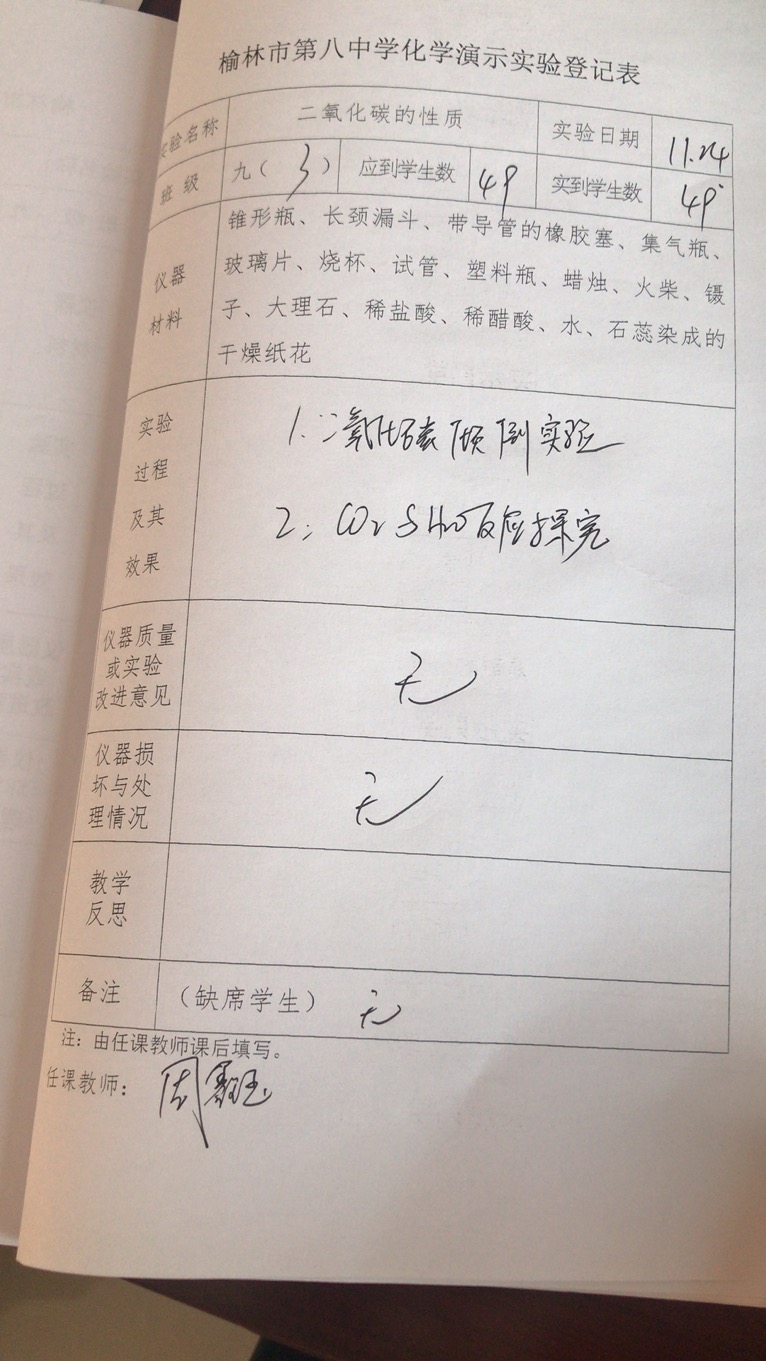 榆林市第八中学化学演示实验登记表
实验名称 二氧化碳的性质 实验日期 11.24
班级 九（3） 应到学生数 49 实到学生数 49
仪器
材料
锥形瓶、长颈漏斗、带导管的橡胶塞、集气瓶、
玻璃片、烧杯、试管、塑料瓶、蜡烛、火柴、镊
子、大理石、稀盐酸、稀醋酸、水、石蕊染成的
干燥纸花
实验
过程
及其
效果
1. 二氧化碳倾倒实验
2: CO2与H2O反应探究
仪器质量
或实验
改进意见
无
仪器损
坏与处
理情况
无
教学
反思
备注 （缺席学生） 无
注：由任课教师课后填写。
任课教师：周